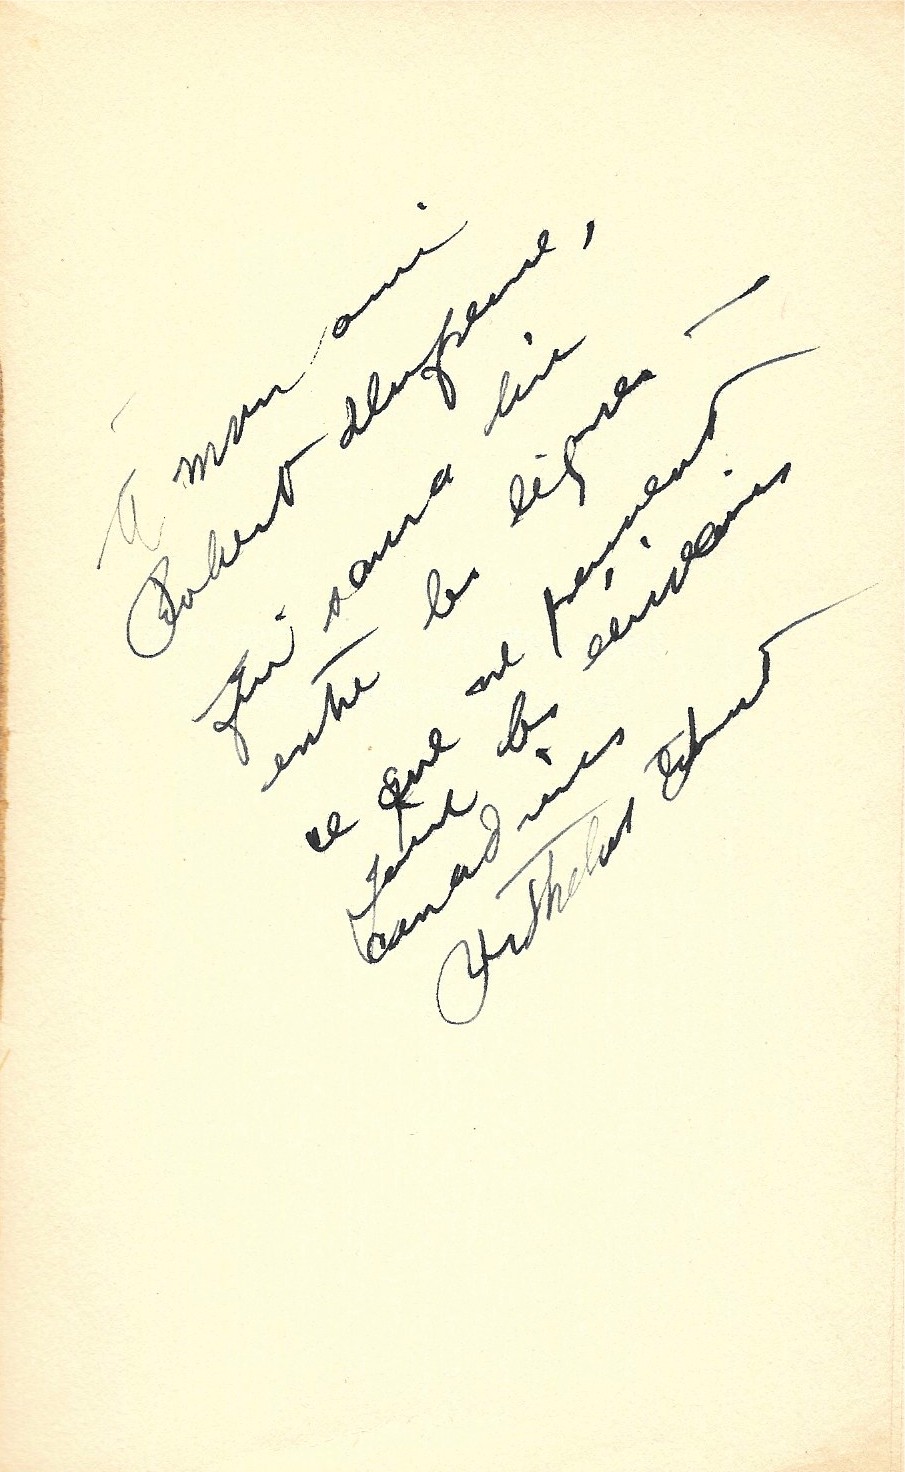 À mon ami
Robert
qui saura lire
entre les lignes —
ce que ne peuvent
les écrivains
canadiens
Berthelot Brunet